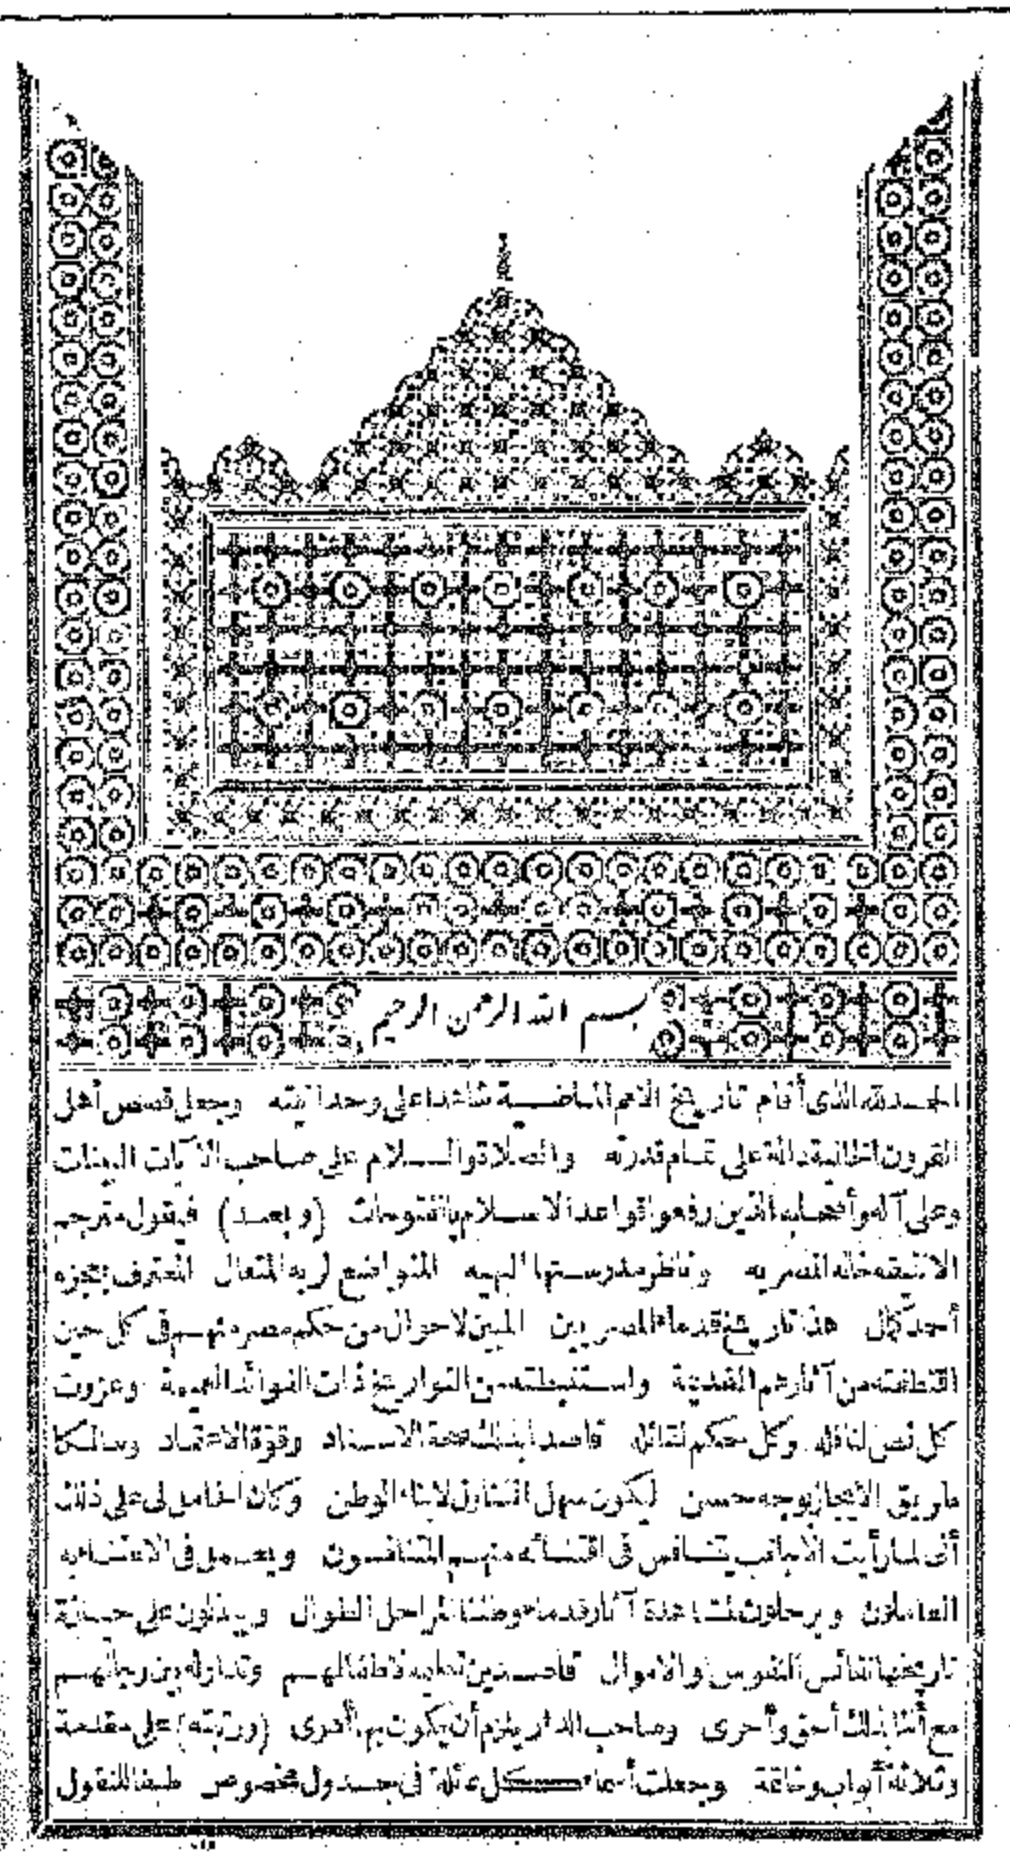 بسم الله الرحمن الرحيم
الحمد لله الذى أقام تاريخ الامم الماضية شاهدا على وحدانيته وجعل قصص أهل
القرون الخالية دالة على تمام قدرته والصلاة والسلام على صاحب الآيات البينات
وعلى آله وأصحابه الذين رفعوا قواعد الاسلام بالفتوحات (وبعد) فيقول مترجم
الانتيقه خانه المصريه وناظر مدرستها البهيه المتواضع لربه المتعال المعترف بعجزه
أحمد كمال هذا تاريخ قدماء المصريين المبين لاحوال من حكم مصر منهم فى كل حين
اقتطفته من آثارهم القديمة واستنبطته من التواريخ ذات الفوائد العميمة وعزوت
كل نص لناقله وكل حكم لقائله قاصدا بذلك صحة الاسناد وقوة الاعتماد وسالكا
طريق الايجاز بوجه حسن ليكون سهل التناول لابناء الوطن وكان الحامل لى على ذلك
أنى لما رأيت الأجانب تتنافس فى اقتنائه منهم المتنافسون ويعمل فى الاعتناء به
العاملون ويرحلون لمشاهدة آثار قدماء وطننا المراحل الطوال ويبذلون على حيازة
تاريخها نفائس النفوس والاموال قاصدين تعليمه لاطفالهم وتداوله بين رجالهم
مع أننا بذلك أحق وأحرى وصاحب الدار يلزم أن يكون بها أدرى (ورتبته) على مقدمة
وثلاثة أبواب وخاتمة وجعلت أسماء كل عائلة فى جدول مخصوص طبقا للنقول